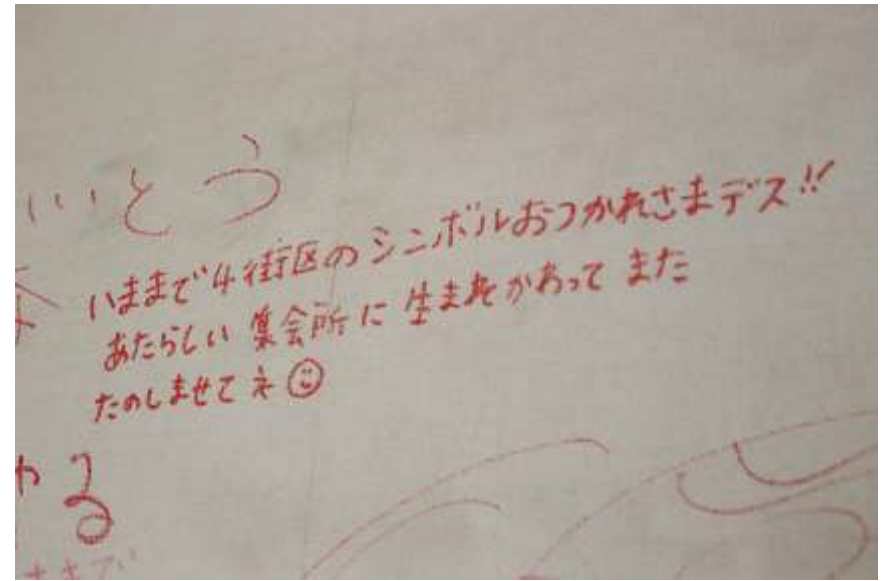 いとう
いままで4街区のシンボルおつかれさまデス!!
あたらしい集会所に生まれかわってまた
たのしませてネ☺
る